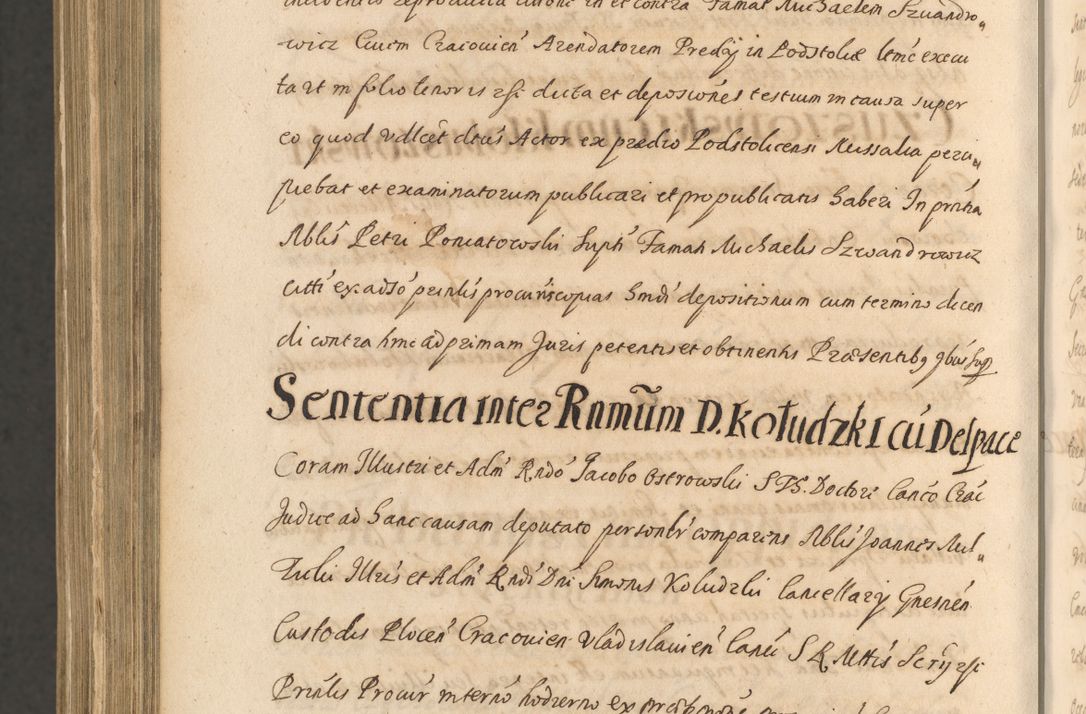 incidentis reproducta citone in et contra Famat Michaelem Szwandro„
wicz Civem Cracovień Arendatorem Predij in Podstolice lrmć execu
ta et in folio tenoris rsc dicta et deposciónes testium in causa super
eo quod vdlcét dtus Actor ex prædio Podstolicensi Missalia perci„
piebat et examinatorum publicari et pro publicatis haberi In pntia
Nblis Petri Poniatowski suptt Famati Michaelis Szwandrowicz
citti ex adsó prinlis procuris copias hmdi depositionum cum termino dicen
di contra hinc ad primam Juris petentis et obtinentis Præsentibq qbus supr
Sententia inter Rnmum D. Kołudzki cú Delpace
Coram Illustri et Adm Rndó Jacobo Ostrowski S Th. Doctori Canco Crac
Judice ad hanc causam deputato personlr comparens Nblis Joannes Mil„
Illris et Adm Rndi Dni Simonis Koludzki Cancellarij Gnesnen
Custodis Plocen Cracovien Vladislavien Canci S R Mttis Scrij rsc
Prinlis Procur in termo hodierno ex